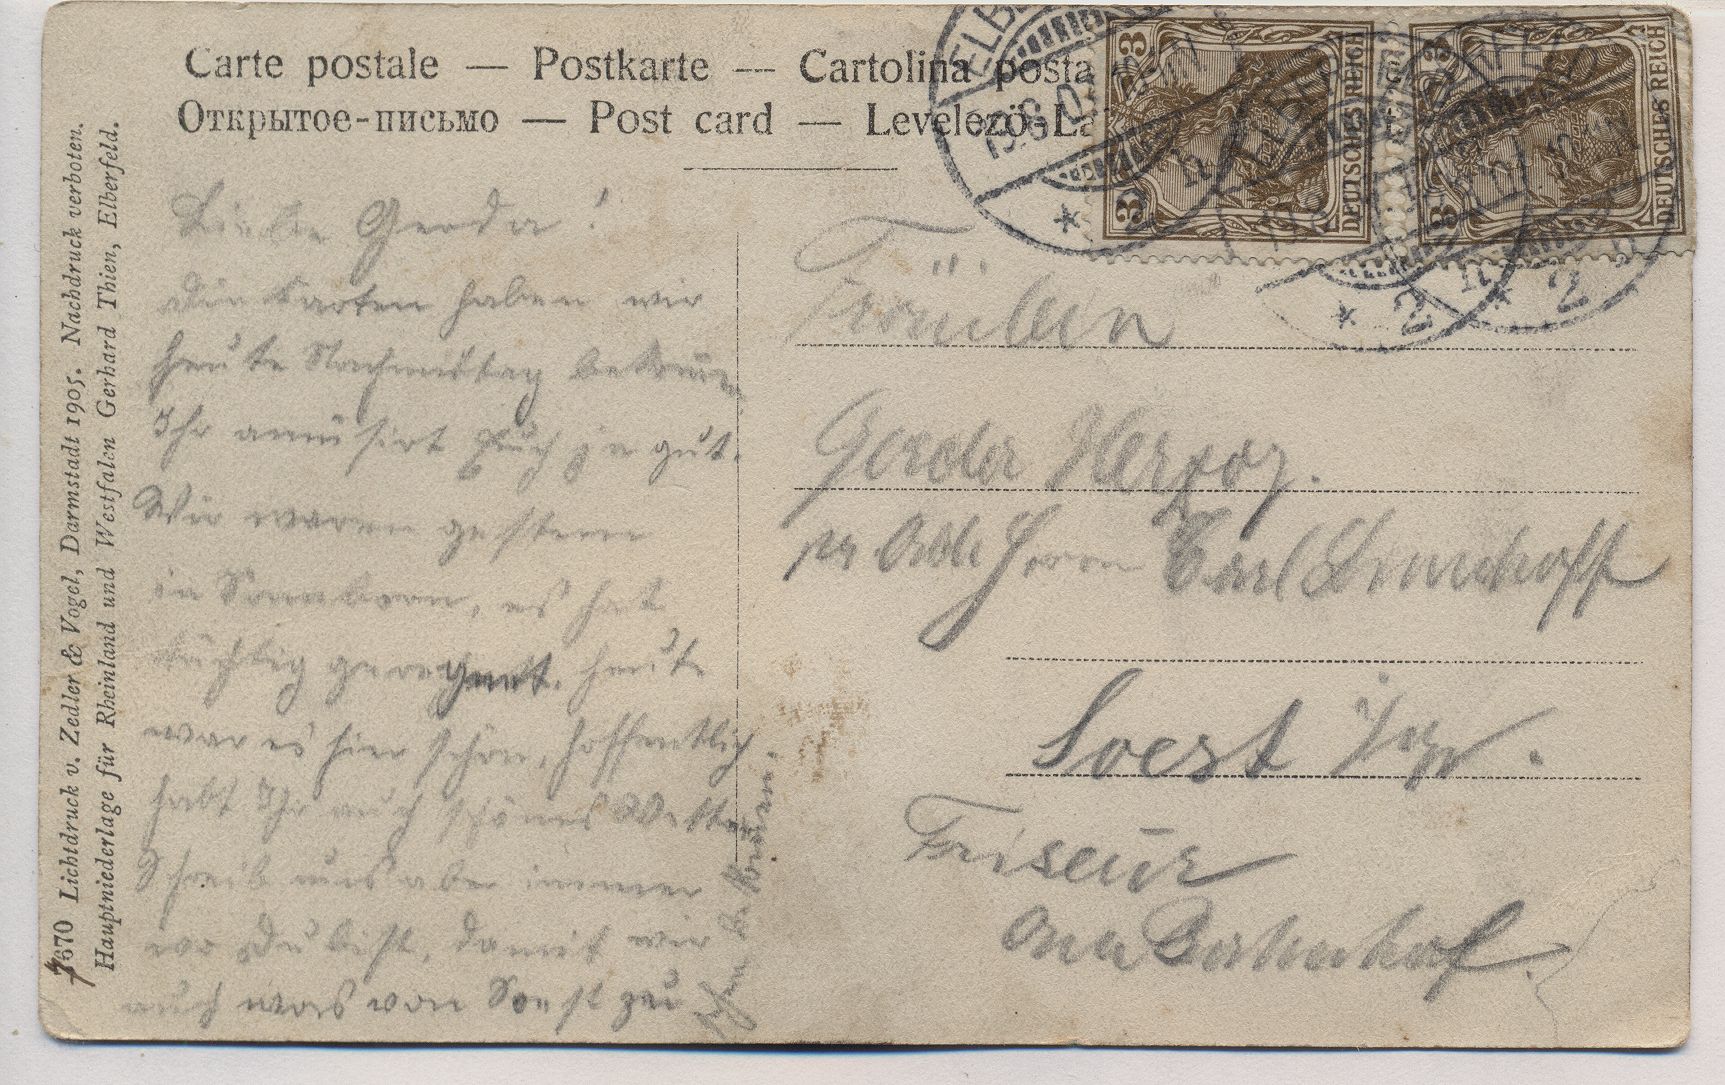 Carte postale — Postkarte — Cartolina posta
Открытое-письмо — Post card — Levelező-La
7670 Lichtdruck v. Zedler & Vogel, Darmstadt 1905. Nachdruck verboten.
Hauptniederlage für Rheinland und Westfalen Gerhard Thien, Elberfeld.
3 3 DEUTSCHES REICH
3 3 DEUTSCHES REICH
ELBERFELD
* 2 n
Liebe Gerda!
Die Karten haben wir
heute Nachmittag bekommen
Ihr amüsirt Euch ja gut.
Wir waren gestern
in Sonnborn, es hat
tüchtig geregnet. heute
war es hier schön, hoffentlich
habt Ihr auch schönes Wetter
Schreib uns aber immer
wo Du bist, damit wir
auch was von Soest zu
Fräulein
Gerda Herzog.
pr Adr. Herrn Carl
Soest i/W.
Friseur
Am Bahnhof.